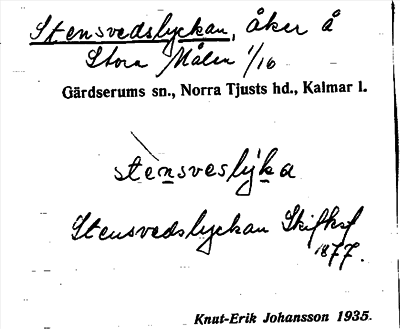 Stensvedslyckan, åker å
Stora Målen 1/16
Gärdserums sn., Norra Tjusts hd., Kalmar l.
stènsveslýka
Stensvedslyckan Skifksf
1877.
Knut-Erik Johansson 1935.